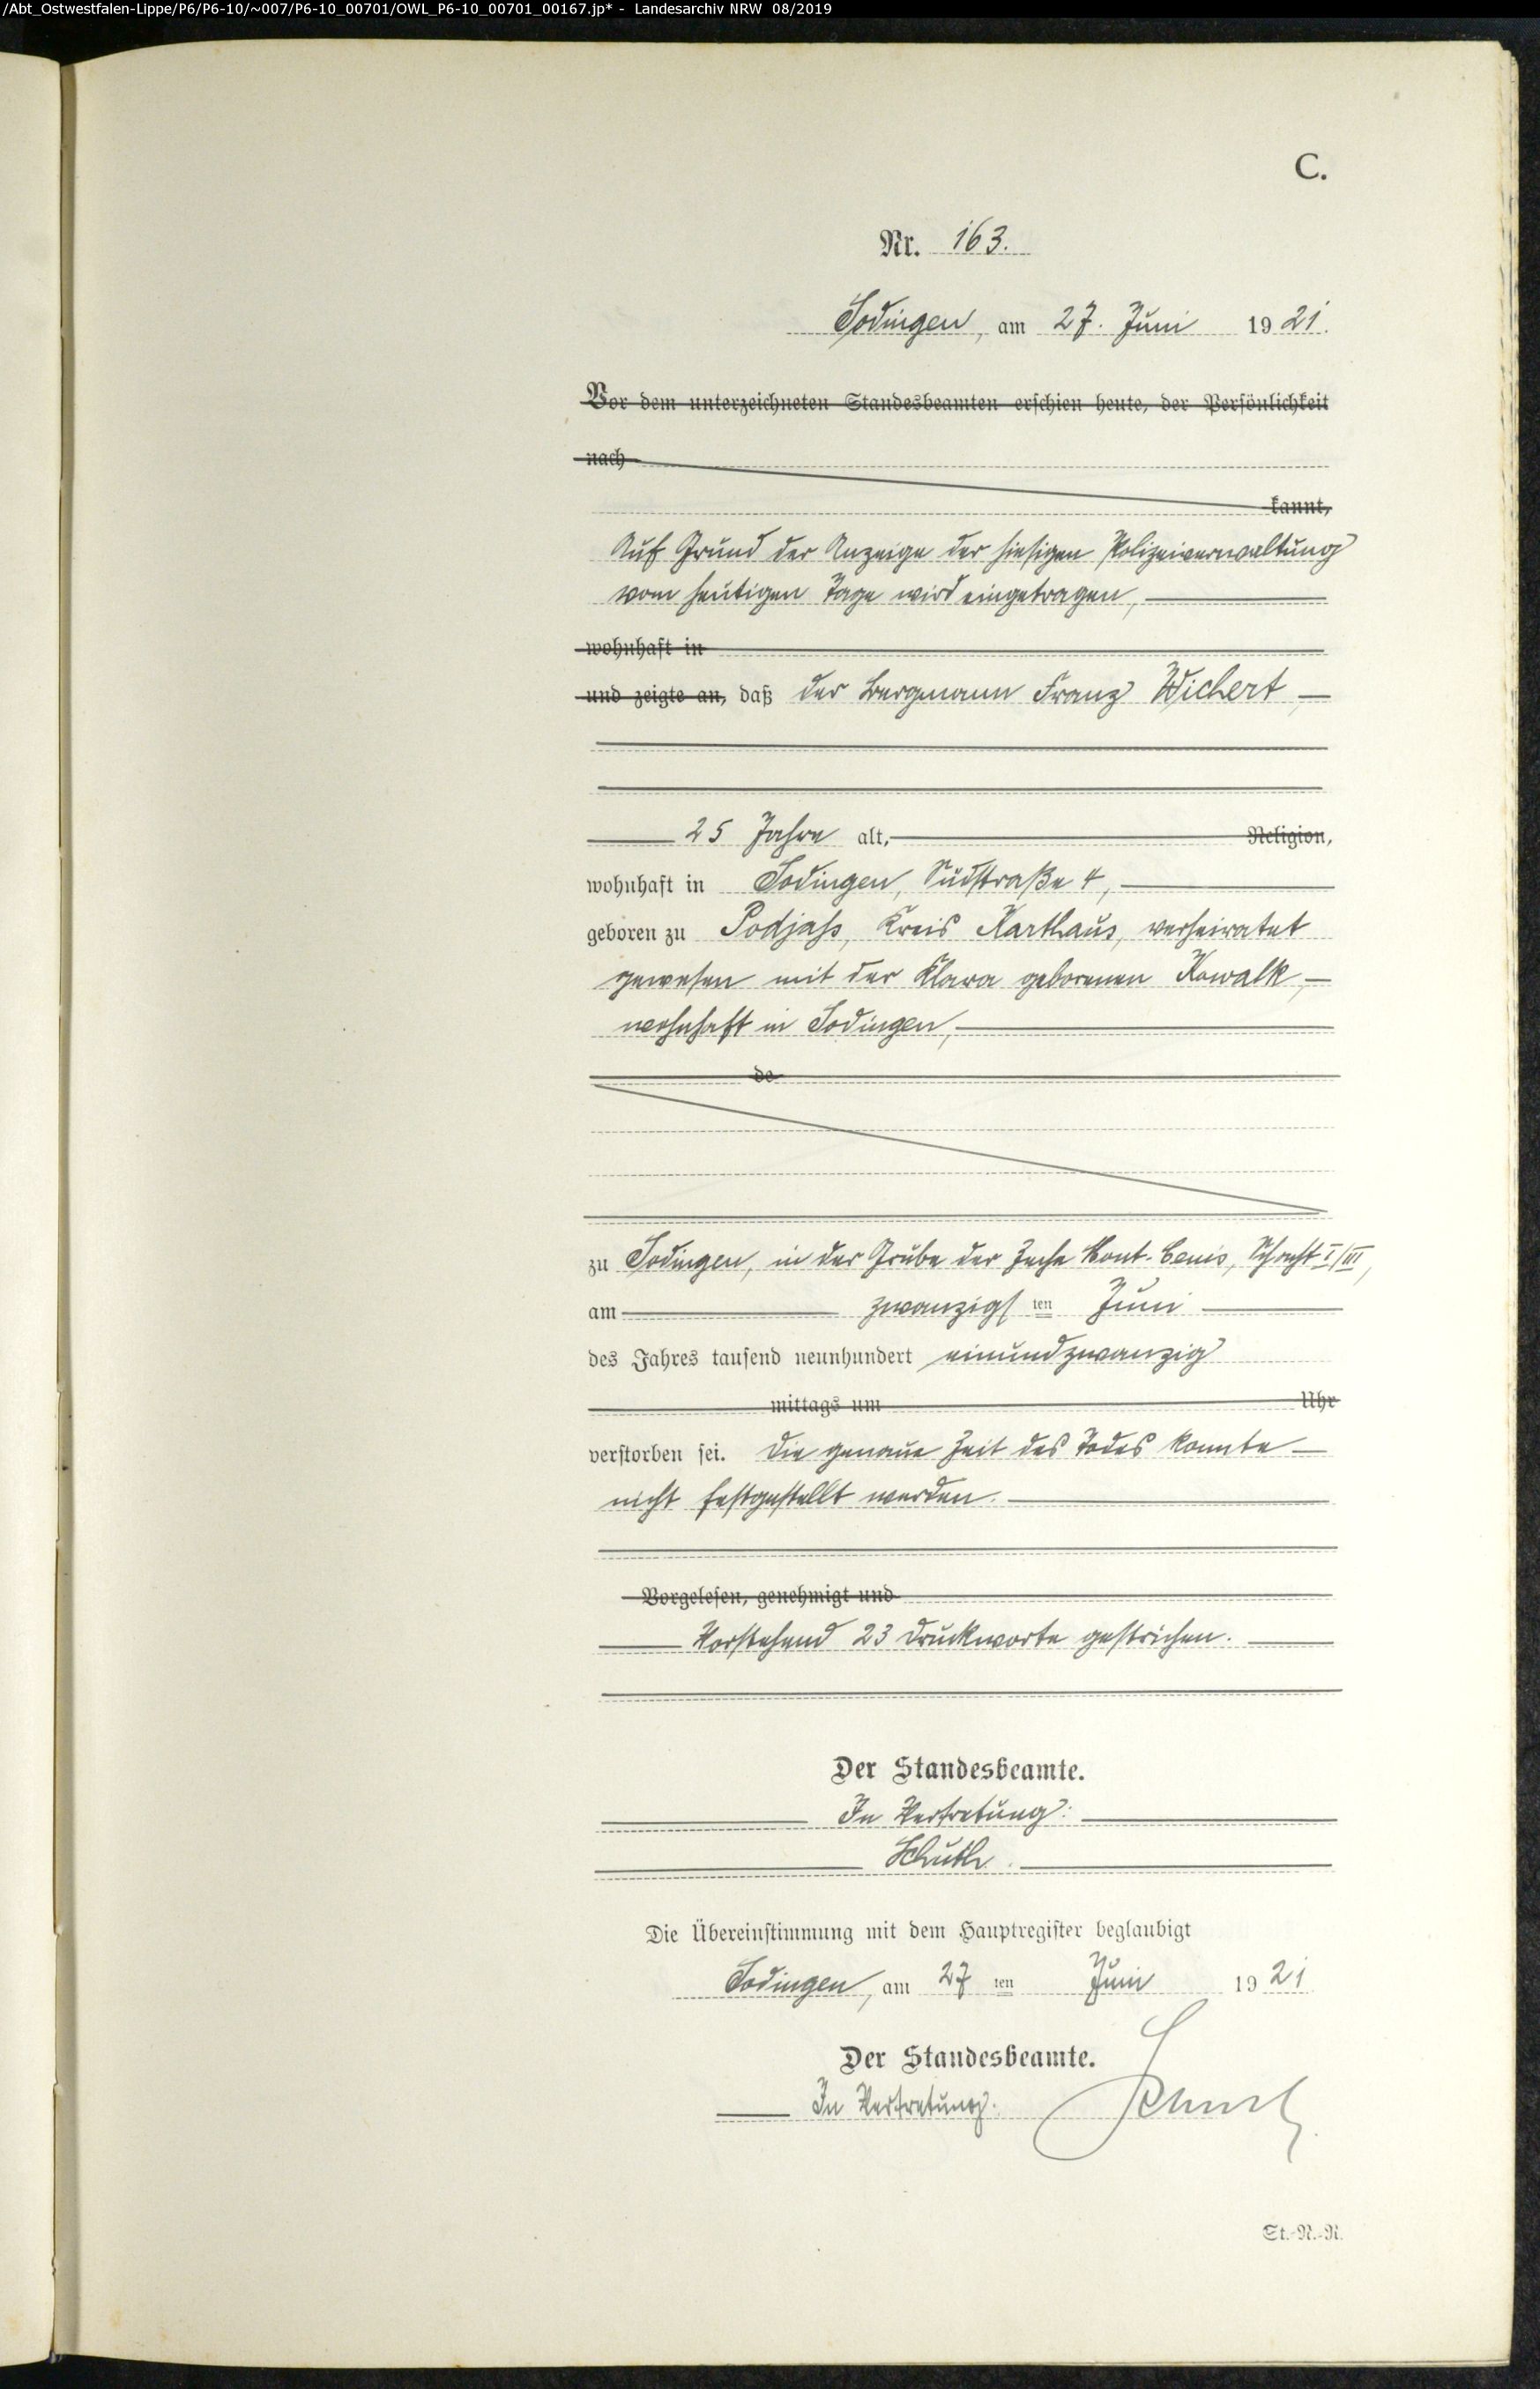 /Abt_Ostwestfalen-Lippe/P6/P6-10/~007/P6-10_00701/OWL_P6-10_00701_00167.jp* - Landesarchiv NRW 08/2019
C.
Nr. 163.
Sodingen, am 27. Juni 1921.
Vor dem unterzeichneten Standesbeamten erschien heute, der Persönlichkeit
nach
kannt,
Auf Grund der Anzeige der hiesigen Polizeiverwaltung
vom heutigen Tage wird eingetragen,
wohnhaft in
und zeigte an, daß der Bergmann Franz Wichert
25 Jahre alt, Religion,
wohnhaft in Sodingen, Südstraße 4,
geboren zu Podjass, Kreis Karthaus, verheiratet
gewesen mit der Klara geborenen Kowalk,
wohnhaft in Sodingen,
de
zu Sodingen, in der Grube der Zeche Mont-Cenis, Schacht I/III,
am zwanzigsten Juni
des Jahres tausend neunhundert einundzwanzig
mittags um Uhr
verstorben sei. Die genaue Zeit des Todes konnte
nicht festgestellt werden.
Vorgelesen, genehmigt und
Vorstehend 23 Druckworte gestrichen.
Der Standesbeamte.
In Vertretung:
Die Übereinstimmung mit dem Hauptregister beglaubigt
Sodingen, am 27 ten Juni 1921
Der Standesbeamte.
In Vertretung.
St.-N.-R.